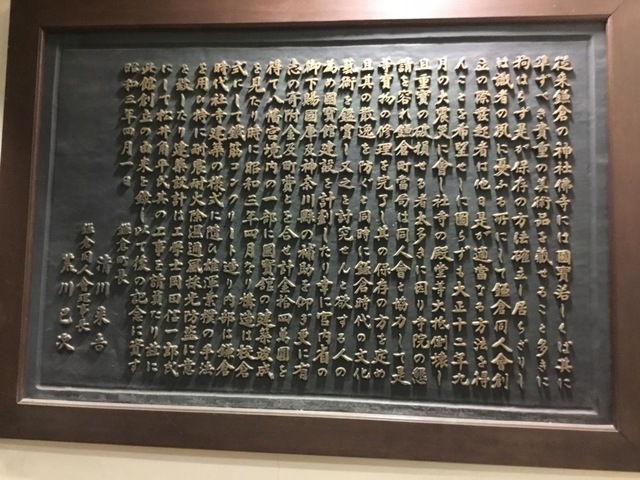 従来鎌倉の神社佛寺には國寶若しくは其に
準ずべき貴重の美術品を蔵せること多きに
拘はらず是が保存の方法確立し居らざりし
は識者の夙に憂ふる所にして鎌倉同人會創
立の際發起者は他日是が適當なる方法を得
んことを希望し に圖らずも大正十二年九
月の大震災に會し社寺の殿堂等大抵倒壊し
且重寶の破損せる者多きに因り寺院の懇
請を容れ鎌倉町當局は同人會と協力して是
等寶物の修理を完了し其の保存の方を定め
且其の散逸を防ぐと同時に鎌倉時代の文化
藝術を鑑賞し又之を討究せんと欲する人の
為め國寶館建設を計劃したり幸に宮内省の
御下賜國庫及神奈川縣の補助を仰ぎ更に有
志の寄附金及町費とを合せ計金拾四萬圓を
得て八幡宮境内の一部に國寶館の建築落成
を見たり時に昭和三年四月なり構造は校倉
式にして鐵筋コンクリート造り内部に鎌倉
時代社寺建築の様式に随ひ雄渾素樸の手法
を用ひ特に耐震耐火除濕通風採光防盗に意
を致したり建築設計は工學士岡田信一郎氏
にして松井角平氏其の工事を請負たり茲に
此館創立の由来を録し以て後の記念に資す
昭和三年四月一日
鎌倉町長
清川来吉
鎌倉同人會理事長
荒川巳次